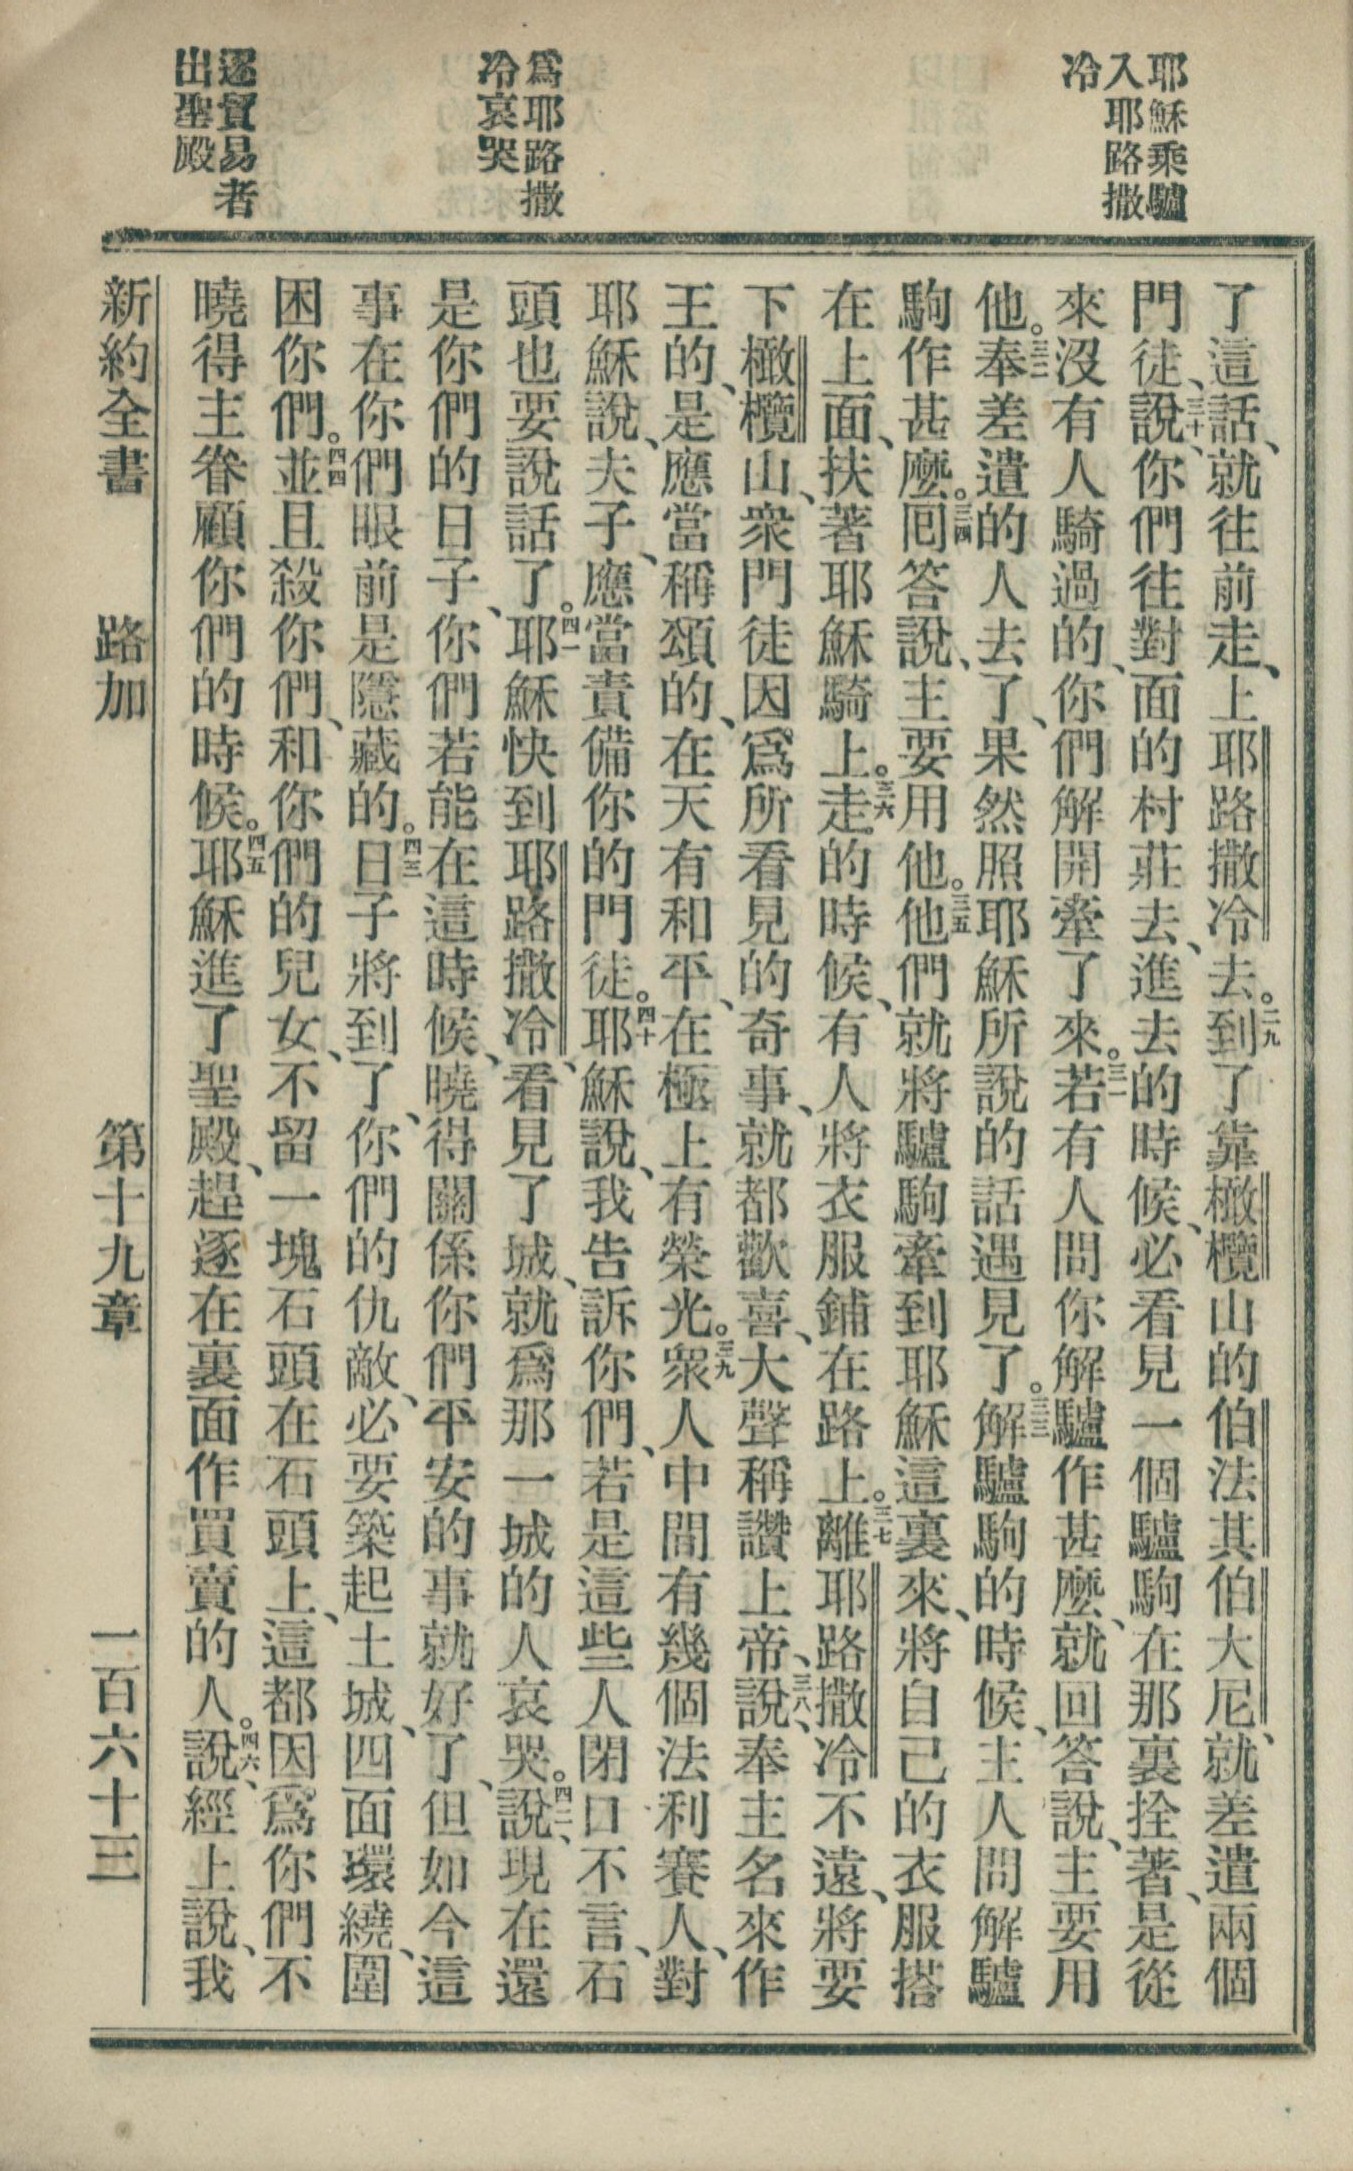 耶穌乘驢
入耶路撒
冷
爲耶路撒
冷哀哭
逐貿易者
出聖殿
了這話、就往前走、上耶路撒冷去。二九到了靠橄欖山的伯法其伯大尼、就差遣兩個
門徒、三十說、你們往對面的村莊去、進去的時候、必看見一個驢駒在那裏拴著、是從
來沒有人騎過的、你們解開牽了來。三一若有人問你解驢作甚麼、就回答說、主要用
他。三二奉差遣的人去了、果然照耶穌所說的話遇見了。三三解驢駒的時候、主人問解驢
駒作甚麼。三四回答說、主要用他。三五他們就將驢駒牽到耶穌這裏來、將自己的衣服搭
在上面、扶著耶穌騎上。三六走的時候、有人將衣服鋪在路上。三七離耶路撒冷不遠、將要
下橄欖山、衆門徒因爲所看見的奇事、就都歡喜、大聲稱讚上帝、三八說、奉主名來作
王的、是應當稱頌的、在天有和平、在極上有榮光。三九衆人中間有幾個法利賽人、對
耶穌說、夫子、應當責備你的門徒。四十耶穌說、我告訴你們、若是這些人閉口不言、石
頭也要說話了。四一耶穌快到耶路撒冷、看見了城、就爲那一城的人哀哭。四二說、現在還
是你們的日子、你們若能在這時候、曉得關係你們平安的事就好了、但如今這
事在你們眼前是隱藏的。四三日子將到了、你們的仇敵、必要築起土城、四面環繞、圍
困你們。四四並且殺你們、和你們的兒女、不留一塊石頭在石頭上、這都因爲你們不
曉得主眷顧你們的時候。四五耶穌進了聖殿、趕逐在裏面作買賣的人。四六說、經上說、我
新約全書 路加 第十九章 一百六十三